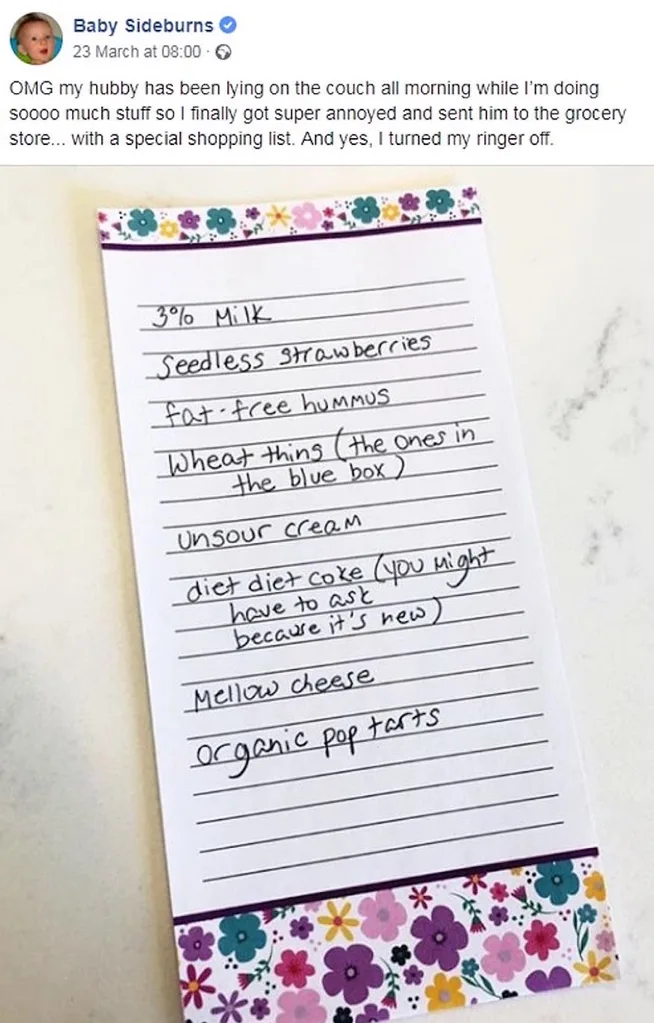 Baby Sideburns
23 March at 08:00 ·
OMG my hubby has been lying on the couch all morning while I'm doing
soooo much stuff so I finally got super annoyed and sent him to the grocery
store... with a special shopping list. And yes, I turned my ringer off.
3% Milk
Seedless strawberries
fat-free hummus
Wheat thing (the ones in
the blue box)
unsour cream
diet diet coke (you might
have to ask
because it's new)
Mellow cheese
organic pop tarts